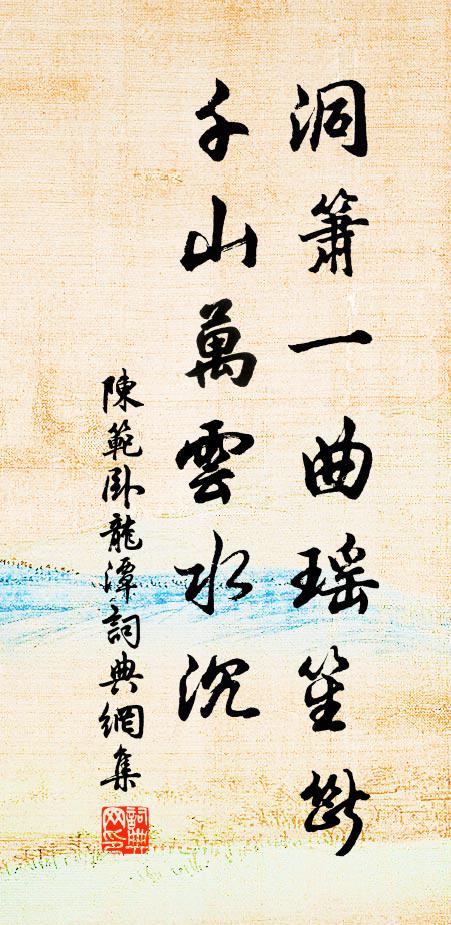 洞簫一曲瑶笙斷
千山萬雲水沉
陳範卧龍潭詞典網集
詞典網印